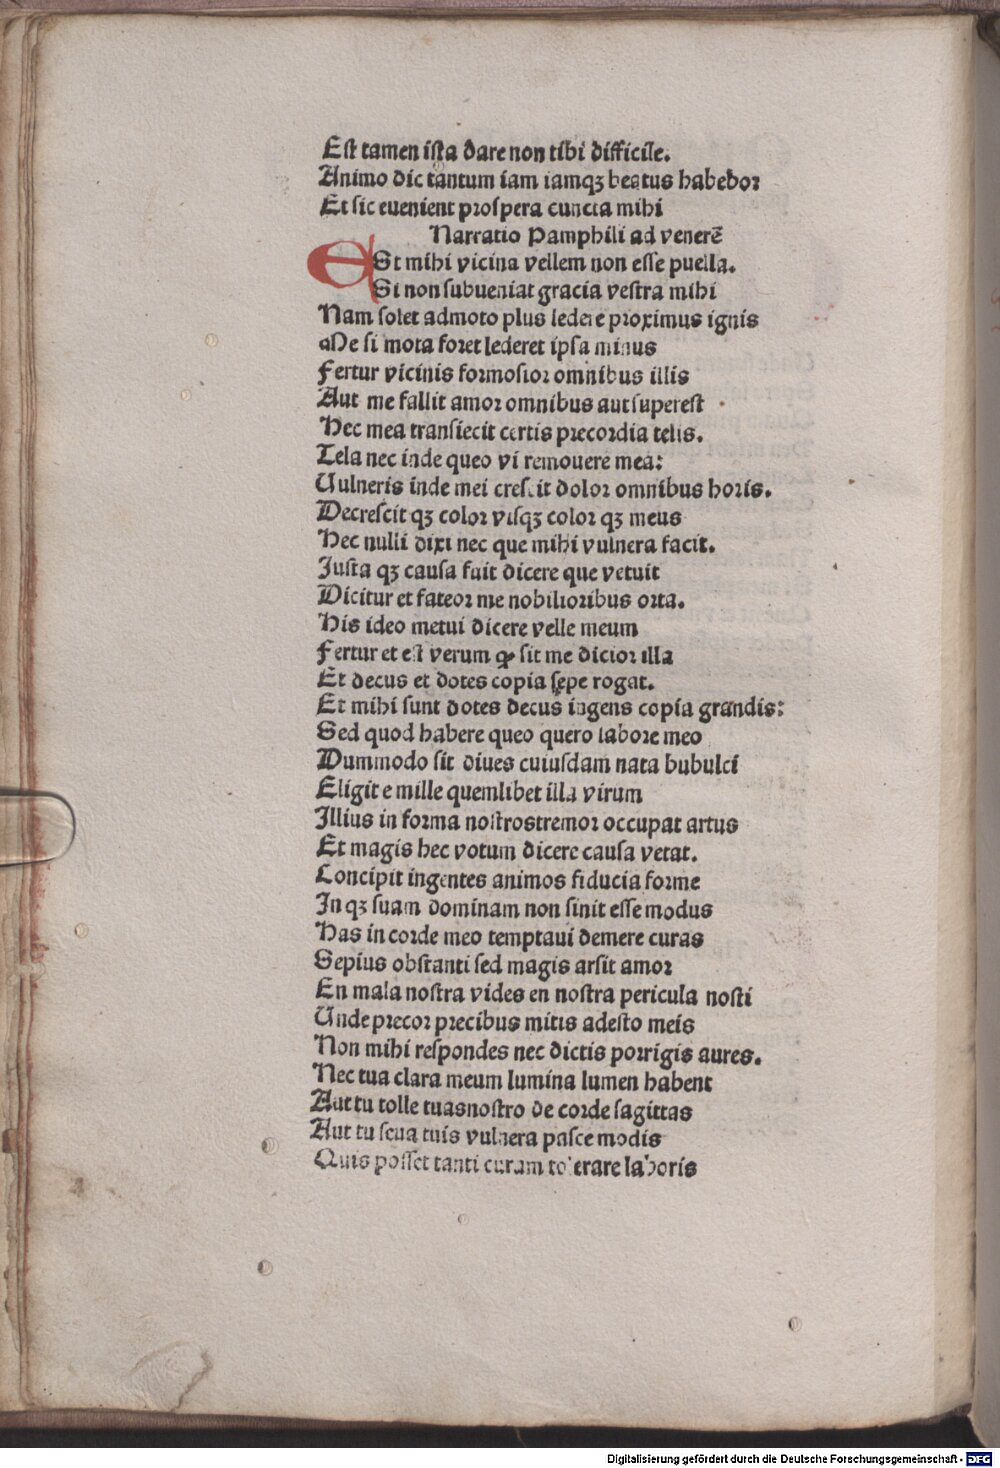 Est tamen ista dare non tibi difficile.
Animo dic tantum iam iamqꝫ beatus habebor
Et sic evenient prospera cuncta mihi
Narratio Pamphili ad venerē
ESt mihi vicina vellem non esse puella.
Si non subueniat gracia vestra mihi
Nam solet admoto plus ledere proximus ignis
Me si mota foret lederet ipsa minus
Fertur vicinis formosior omnibus illis
Aut me fallit amor omnibus aut superest
Hec mea transiecit certis precordia telis.
Tela nec inde queo vi remouere mea:
Uulneris inde mei crescit dolor omnibus horis.
Decrescit qꝫ color visqꝫ color qꝫ meus
Hec nulli dixi nec que mihi vulnera facit.
Iusta qꝫ causa fuit dicere que vetuit
Dicitur et fateor me nobilioribus orta.
His ideo metui dicere velle meum
Fertur et est verum ꝙ sit me dicior illa
Et decus et dotes copia sepe rogat.
Et mihi sunt dotes decus ingens copia grandis:
Sed quod habere queo quero labore meo
Dummodo sit diues cuiusdam nata bubulci
Eligit e mille quemlibet illa virum
Illius in forma nostrostremor occupat artus
Et magis hec votum dicere causa vetat.
Concipit ingentes animos fiducia forme
In qꝫ suam dominam non sinit esse modus
Has in corde meo temptaui demere curas
Sepius obstanti sed magis arsit amor
En mala nostra vides en nostra pericula nosti
Unde precor precibus mitis adesto meis
Non mihi respondes nec dictis porrigis aures.
Nec tua clara meum lumina lumen habent
Aut tu tolle tuasnostro de corde sagittas
Aut tu seua tuis vulnera pasce modis
Quis posset tanti curam tolerare laboris
Digitalisierung gefördert durch die Deutsche Forschungsgemeinschaft - DFG